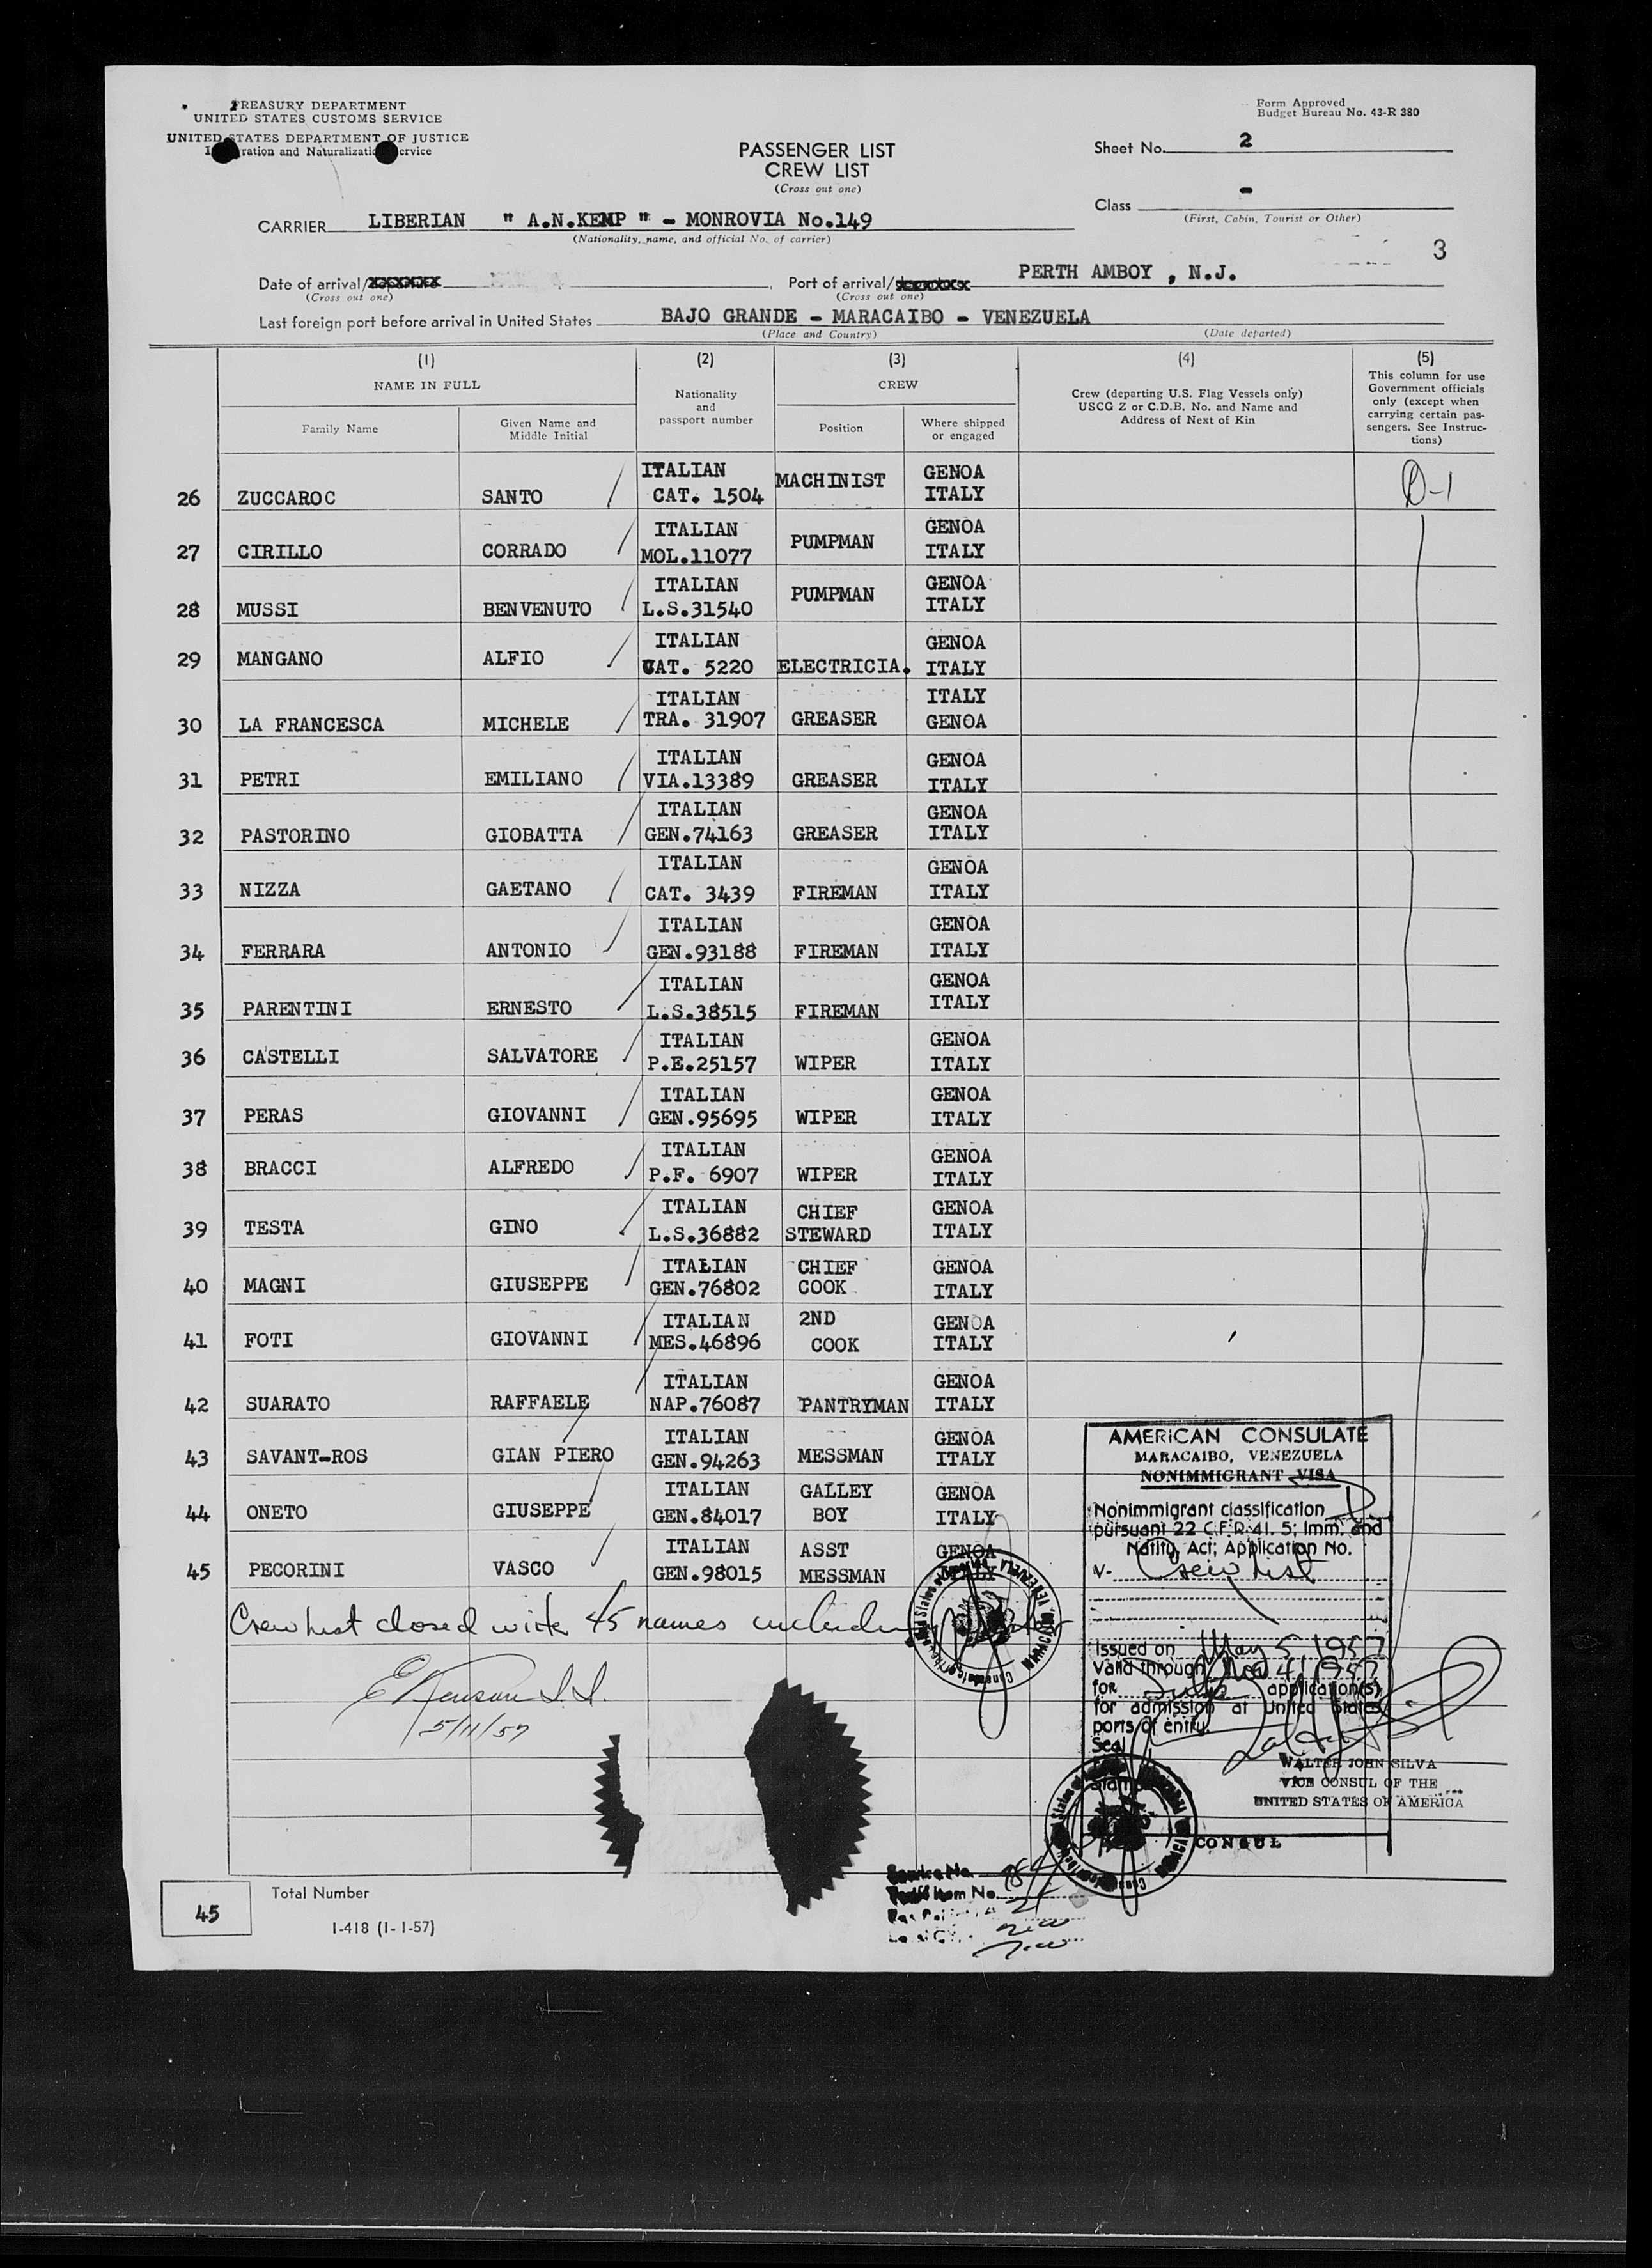 TREASURY DEPARTMENT
UNITED STATES CUSTOMS SERVICE
UNITED STATES DEPARTMENT OF JUSTICE
ration and Naturalizatio ervice
Form Approved
Budget Bureau No. 43-R 380
PASSENGER LIST
CREW LIST
(Cross out one)
Sheet No. 2
Class -
(First, Cabin, Tourist or Other)
CARRIER LIBERIAN " A.N.KEMP " - MONROVIA No.149
(Nationality, name, and official No. of carrier)
3
Date of arrival/
(Cross out one)
Port of arrival/ PERTH AMBOY , N.J.
(Cross out one)
Last foreign port before arrival in United States BAJO GRANDE - MARACAIBO - VENEZUELA
(Place and Country) (Date departed)
(1) (2) (3) (4) (5)
NAME IN FULL
Family Name
Given Name and Middle Initial
Nationality and passport number
CREW
Position
Where shipped or engaged
Crew (departing U.S. Flag Vessels only)
USCG Z or C.D.B. No. and Name and
Address of Next of Kin
This column for use
Government officials
only (except when
carrying certain pas-
sengers. See Instruc-
tions)
26 ZUCCAROC SANTO ITALIAN CAT. 1504 MACHINIST GENOA ITALY D-1
27 CIRILLO CORRADO ITALIAN MOL.11077 PUMPMAN GENOA ITALY
28 MUSSI BENVENUTO ITALIAN L.S.31540 PUMPMAN GENOA ITALY
29 MANGANO ALFIO ITALIAN CAT. 5220 ELECTRICIA. GENOA ITALY
30 LA FRANCESCA MICHELE ITALIAN TRA. 31907 GREASER ITALY GENOA
31 PETRI EMILIANO ITALIAN VIA.13389 GREASER GENOA ITALY
32 PASTORINO GIOBATTA ITALIAN GEN.74163 GREASER GENOA ITALY
33 NIZZA GAETANO ITALIAN CAT. 3439 FIREMAN GENOA ITALY
34 FERRARA ANTONIO ITALIAN GEN.93188 FIREMAN GENOA ITALY
35 PARENTINI ERNESTO ITALIAN L.S.38515 FIREMAN GENOA ITALY
36 CASTELLI SALVATORE ITALIAN P.E.25157 WIPER GENOA ITALY
37 PERAS GIOVANNI ITALIAN GEN.95695 WIPER GENOA ITALY
38 BRACCI ALFREDO ITALIAN P.F. 6907 WIPER GENOA ITALY
39 TESTA GINO ITALIAN L.S.36882 CHIEF STEWARD GENOA ITALY
40 MAGNI GIUSEPPE ITALIAN GEN.76802 CHIEF COOK GENOA ITALY
41 FOTI GIOVANNI ITALIAN MES.46896 2ND COOK GENOA ITALY
42 SUARATO RAFFAELE ITALIAN NAP.76087 PANTRYMAN GENOA ITALY
43 SAVANT-ROS GIAN PIERO ITALIAN GEN.94263 MESSMAN GENOA ITALY
44 ONETO GIUSEPPE ITALIAN GEN.84017 GALLEY BOY GENOA ITALY
45 PECORINI VASCO ITALIAN GEN.98015 ASST MESSMAN GENOA ITALY
Crew list closed with 45 names including
5/11/57
AMERICAN CONSULATE
MARACAIBO, VENEZUELA
NONIMMIGRANT VISA
Nonimmigrant classification D
pursuant 22 C.F.R. 41. 5; Imm. and
Natlty. Act; Application No.
V- Crew List
Issued on May 5 1957
Valid through Nov 4 1957
for application(s)
for admission at United States
ports of entry.
Seal
Stamp
WALTER JOHN SILVA
VICE CONSUL OF THE
UNITED STATES OF AMERICA
CONSUL
Service No.
Tariff Item No.
45 Total Number
I-418 (1-1-57)